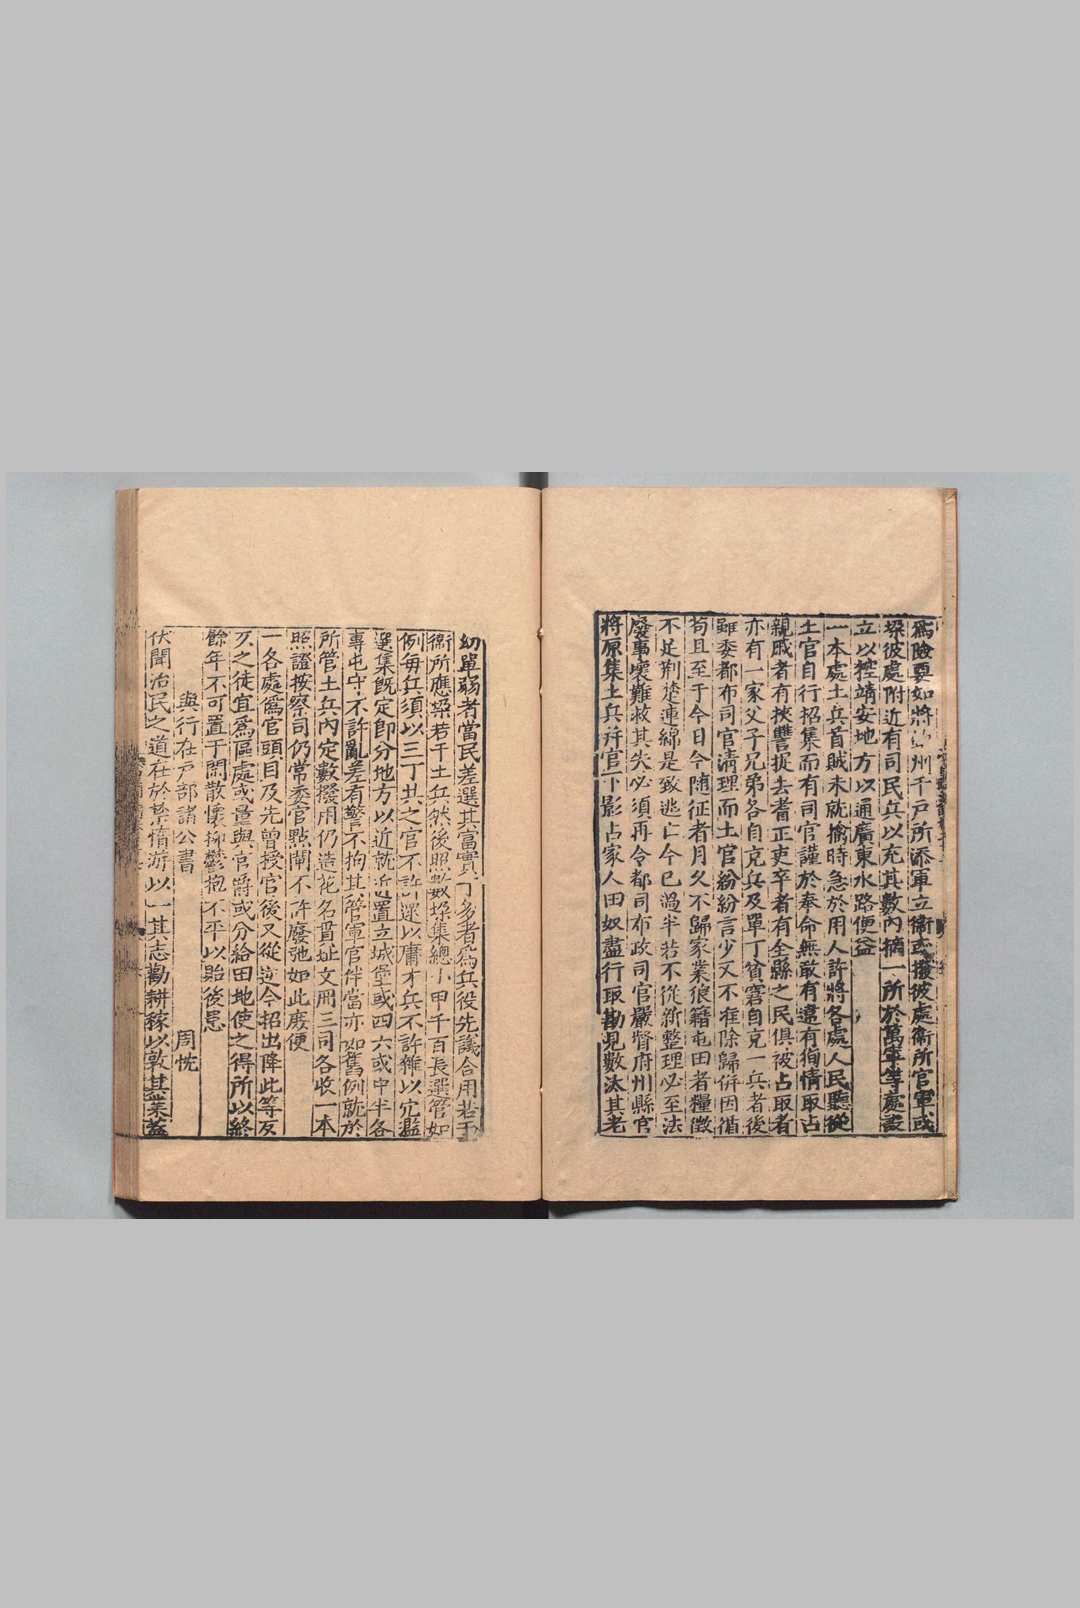 爲險要如將州千戶所添軍立衞或撥彼處衞所官軍或
垜彼處附近有司民兵以充其數內摘一所於萬軍等處設
立以控靖安地方以通廣東水路便益
一本處土兵首賊未就擒時急於用人許將各處人民聽從
土官自行招集而有司官謹於奉命無敢有違有徇情取占
親戚者有挾讐捉去耆正吏卒者有全縣之民俱被占取者
亦有一家父子兄弟各自克兵及單丁貧窘自克一兵者後
雖委都布司官淸理而土官紛紛言少又不准除歸併因循
苟且至于今日令隨征者月久不歸家業狼籍屯田者糧徵
不足荆楚連綿是致逃亡今已過半若不從新整理必至法
廢事壞難救其失必須再令都司布政司官嚴督府州縣官
將原集土兵幷官下影占家人田奴盡行取勘見數汰其老
幼單弱者當民差選其富實丁多者爲兵役先議合用若干
衞所應垜若干土兵然後照數垜集總小甲千百長選管如
例每兵須以三丁共之官不許迷以庸才兵不許雜以宂濫
選集既定卽分地方以近就近置立城堡或四六或中半各
專屯守不許亂差有警不拘其營軍官伴當亦如舊例就於
所管土兵內定數撥用仍造花名貫址文冊三司各收一本
照證按察司仍常委官點閘不許廢弛如此庶便
一各處爲官頭目及先曾授官後又從逆今招出降此等反
仄之徒宜爲區處或量與官爵或分給田地使之得所以終
餘年不可置于閒散懷抑鬱抱不平以貽後患
與行在戶部諸公書 周忱
伏聞治民之道在於禁惰游以一其志勸耕稼以敦其業蓋